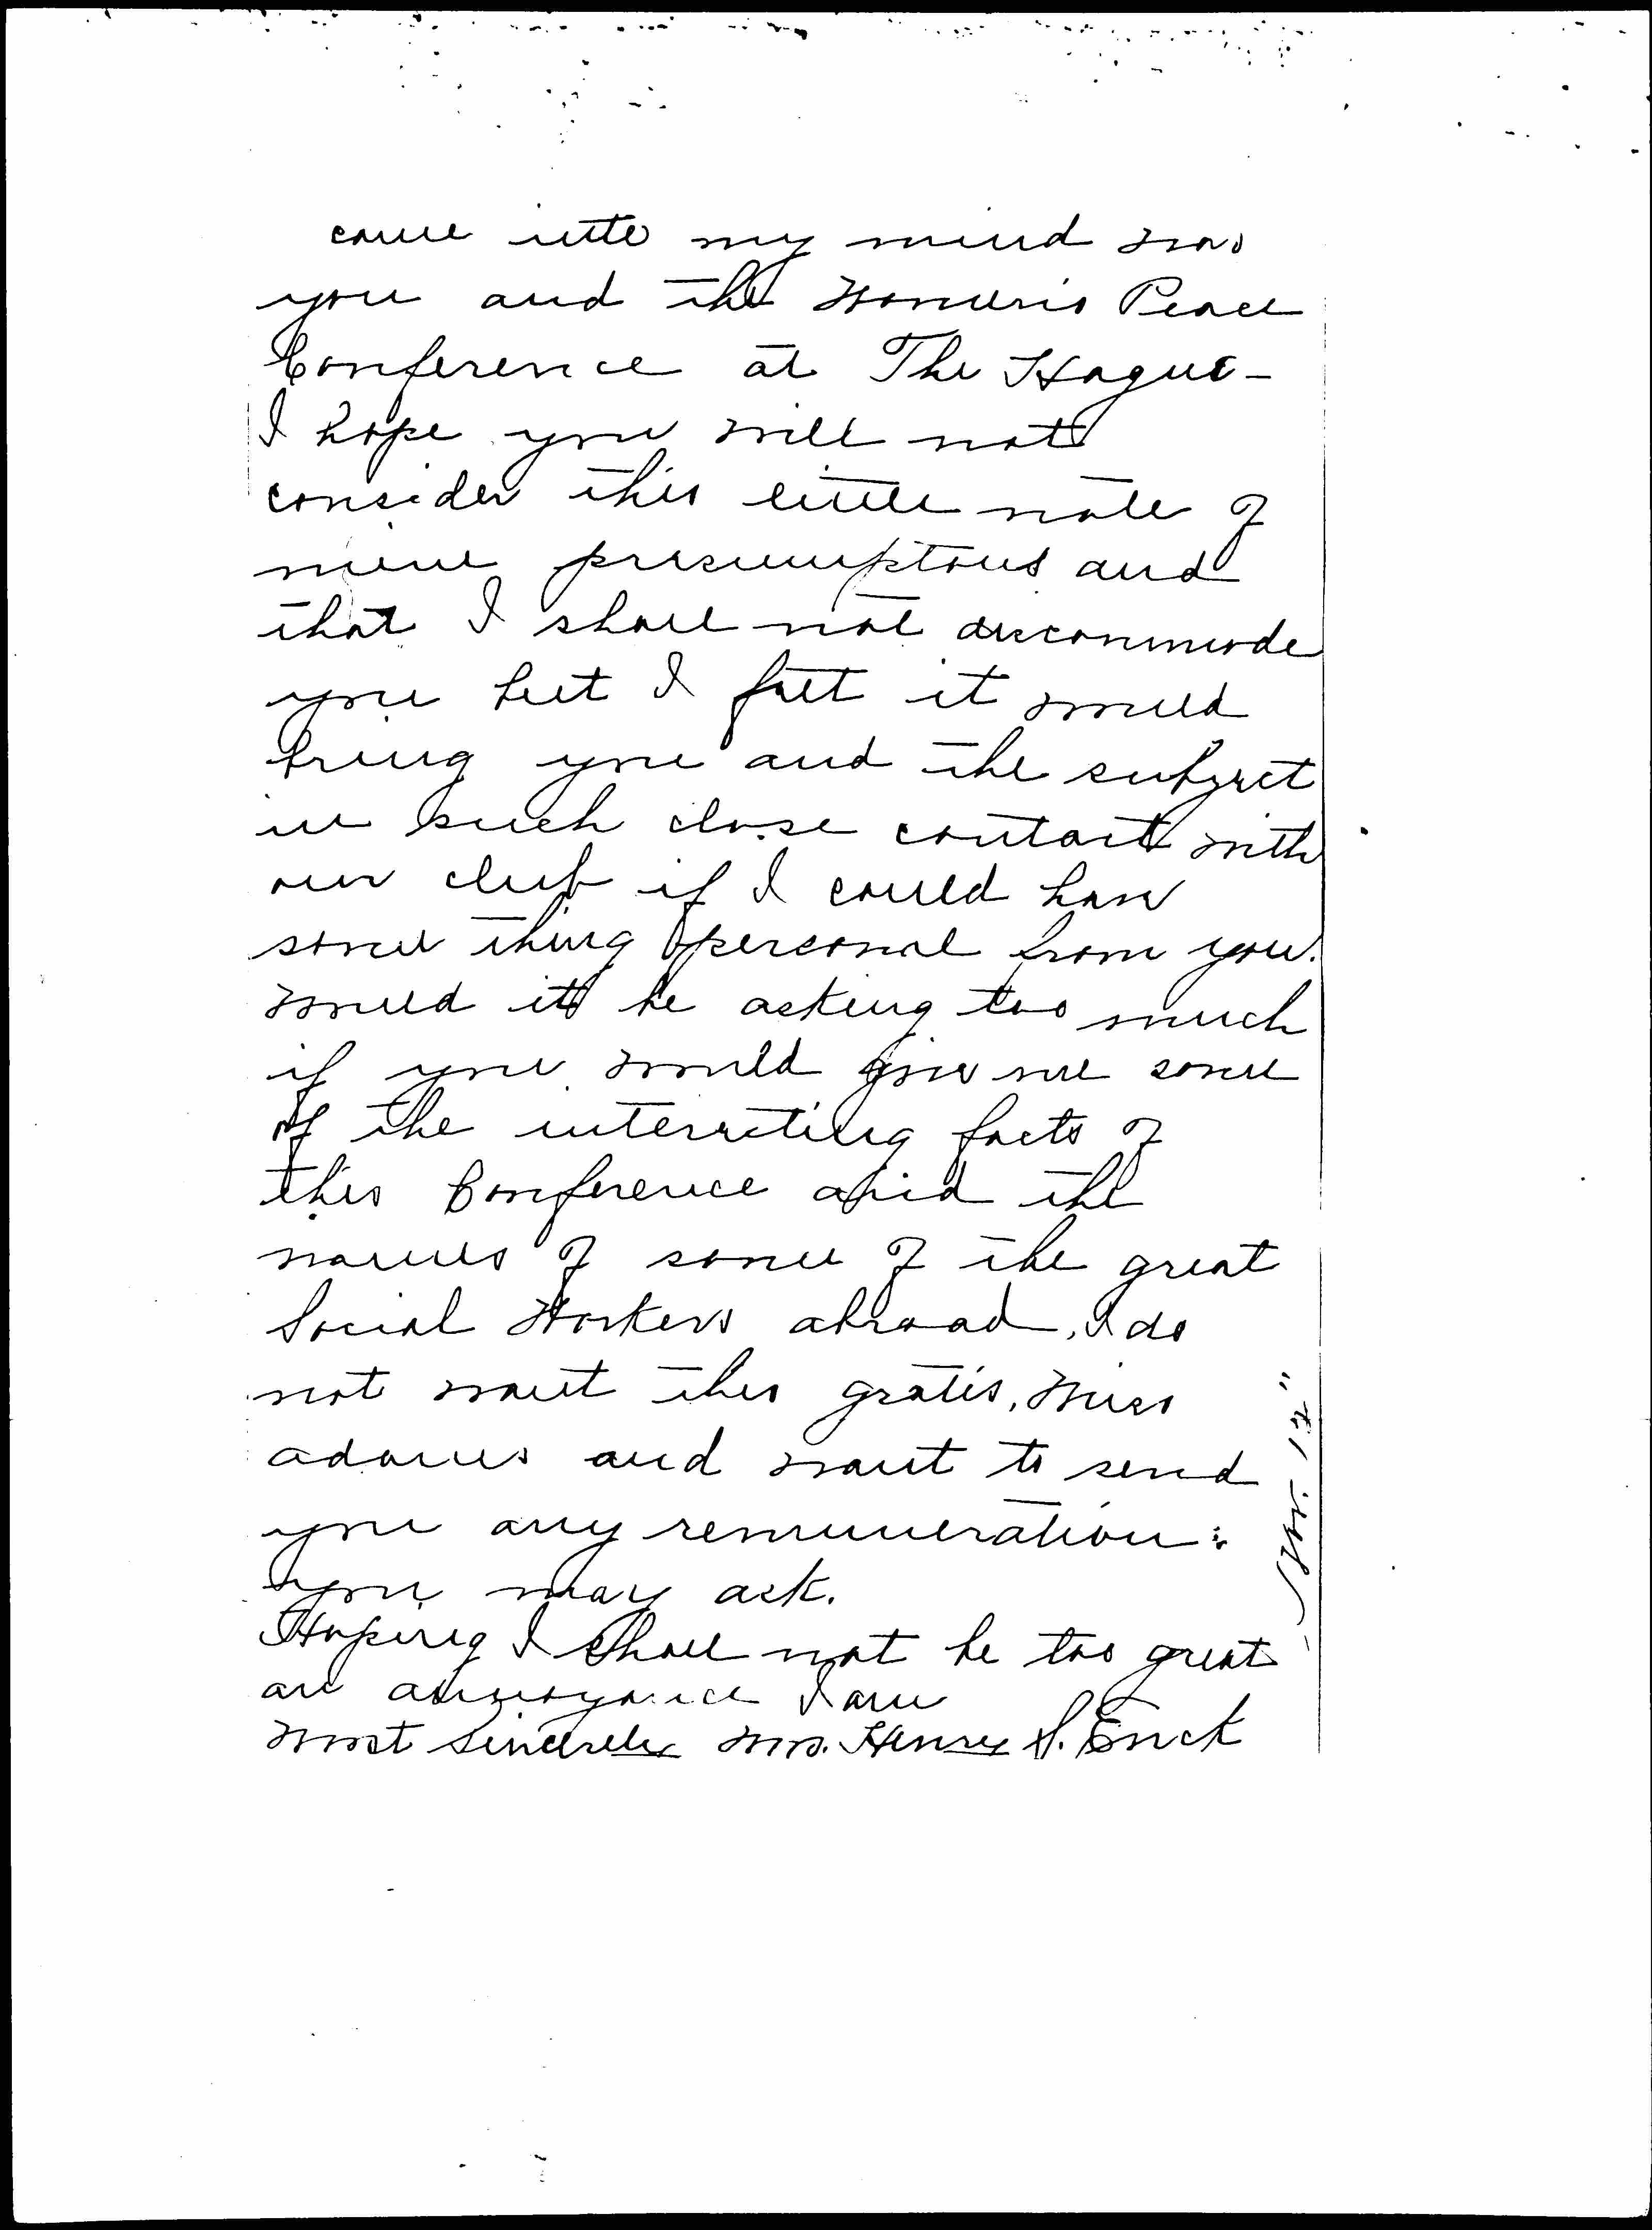 come into my mind was
you and the Women's Peace
Conference at The Hague -
I hope you will not
consider this little note of
mine presumptous and
that I shall not discommode
you but I felt it would
bring you and the subject
in such close contact with
our club if I could have
some thing personal from you.
Would it be asking too much
if you would give me some
of the interesting facts of
this Conference and the
names of some of the great
Social Workers abroad, I do
not want this gratis, Miss
Adams and want to send
you any remuneration
you may ask.
Hoping I shall not be too great
an annoyance I am
Most Sincerely Mrs. Henry S.